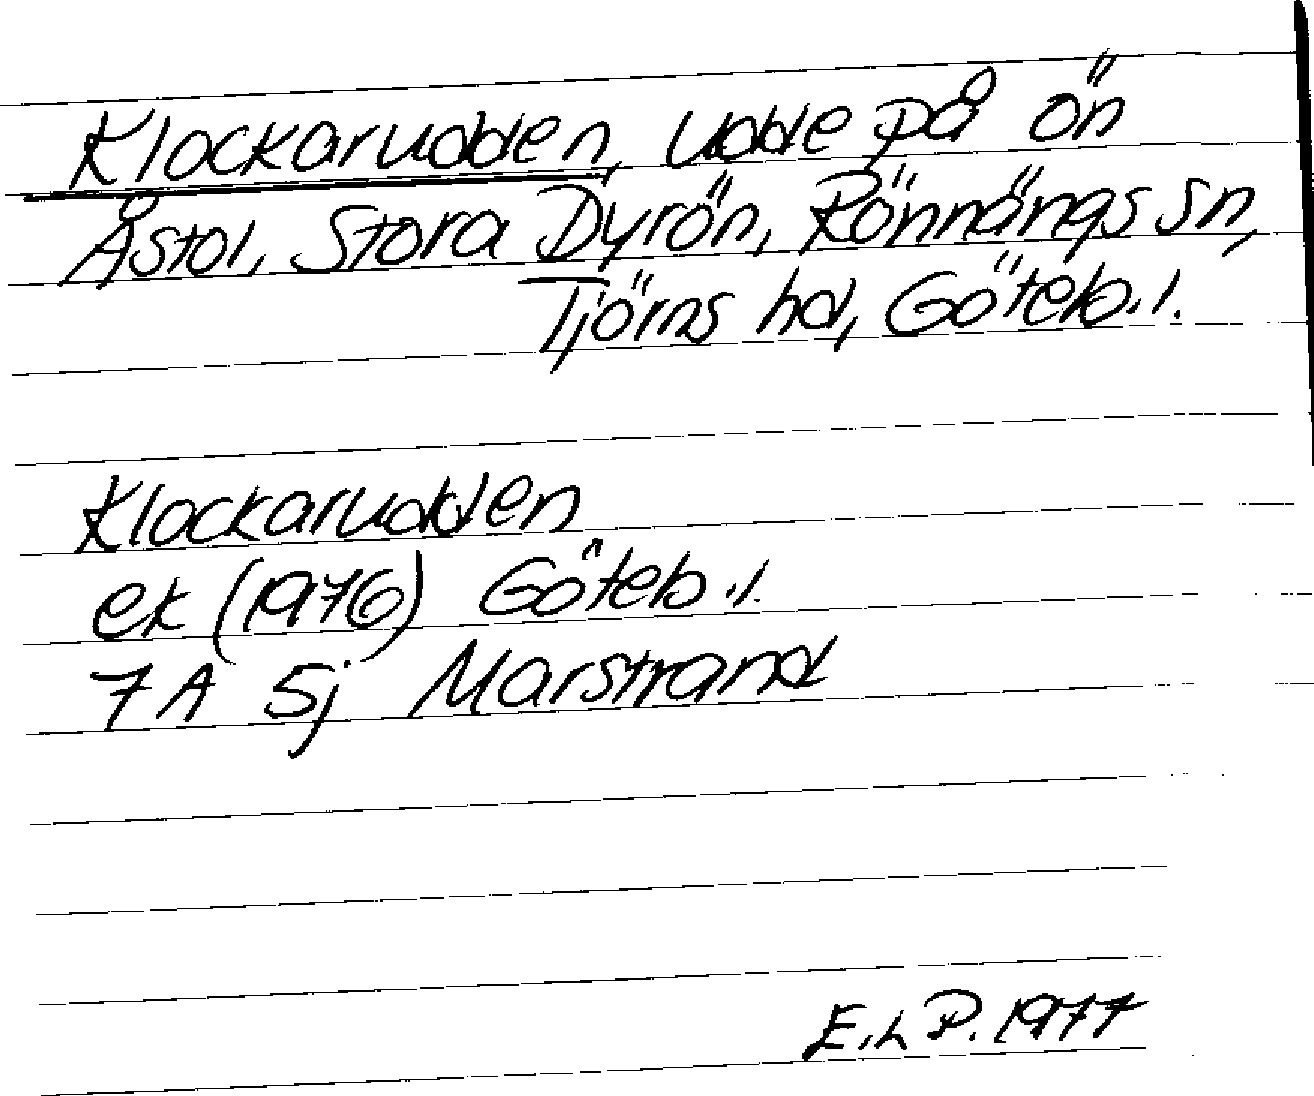 Klockarudden, udde på ön
Åstol, Stora Dyrön, Rönnängs sn,
Tjörns hd, Göteb.l.
Klockarudden
ek (1976) Göteb.l.
7A 5j Marstrand
E.L P. 1977